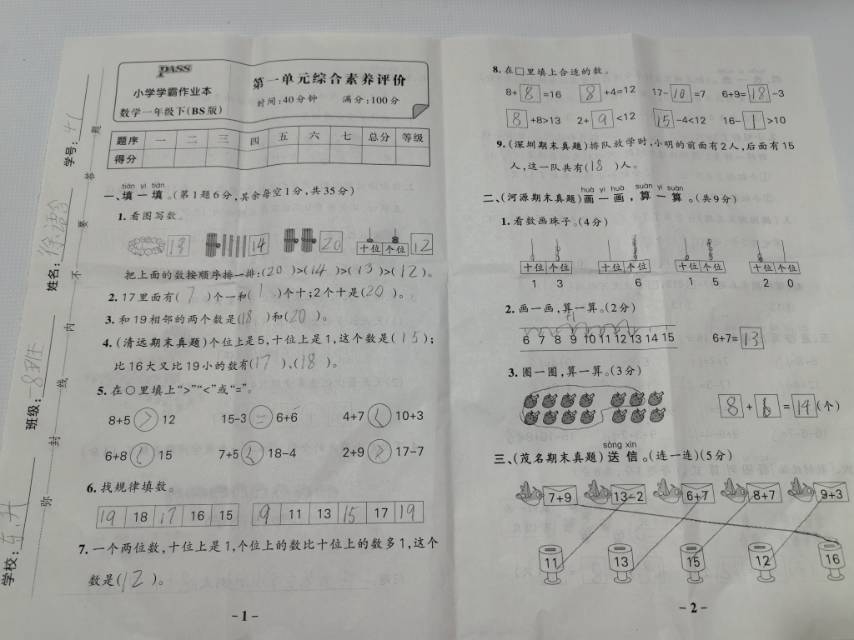 PASS
小学学霸作业本
数学一年级下(BS版)
第一单元综合素养评价
时间:40分钟 满分:100分
题序 一 二 三 四 五 六 七 总分 等级
得分
tián yi tián
一、填一填。(第1题6分,其余每空1分,共35分)
1. 看图写数。
13 14 20 十位 个位 12
把上面的数按顺序排一排:(20)>(14)>(13)>(12)。
2. 17里面有(7)个一和(1)个十;2个十是(20)。
3. 和19相邻的两个数是(18)和(20)。
4. (清远期末真题)个位上是5,十位上是1,这个数是(15);
比16大又比19小的数有(17)、(18)。
5. 在○里填上“>”“<”或“=”。
8+5 > 12 15-3 = 6+6 4+7 < 10+3
6+8 < 15 7+5 < 18-4 2+9 > 17-7
6. 找规律填数。
19 18 17 16 15 9 11 13 15 17 19
7. 一个两位数,十位上是1,个位上的数比十位上的数多1,这个
数是(12)。
-1-
学校:
班级:
姓名:
学号:41
弥 封 线 内 不 要 答 题
8. 在□里填上合适的数。
8+8=16 8+4=12 17-10=7 6+9=18-3
8+8>13 2+9<12 15-4<12 16-1>10
9. (深圳期末真题)排队放学时,小明的前面有2人,后面有15
人,这一队共有(18)人。
huà yi huà suàn yi suàn
二、(河源期末真题)画一画,算一算。(共9分)
1. 看数画珠子。(4分)
十位 个位 十位 个位 十位 个位 十位 个位
1 3 6 1 5 2 0
2. 画一画,算一算。(2分)
6 7 8 9 10 11 12 13 14 15 6+7=13
3. 圈一圈,算一算。(3分)
8+6=14(个)
sòng xìn
三、(茂名期末真题)送信。(连一连)(5分)
7+9 13-2 6+7 8+7 9+3
11 13 15 12 16
-2-